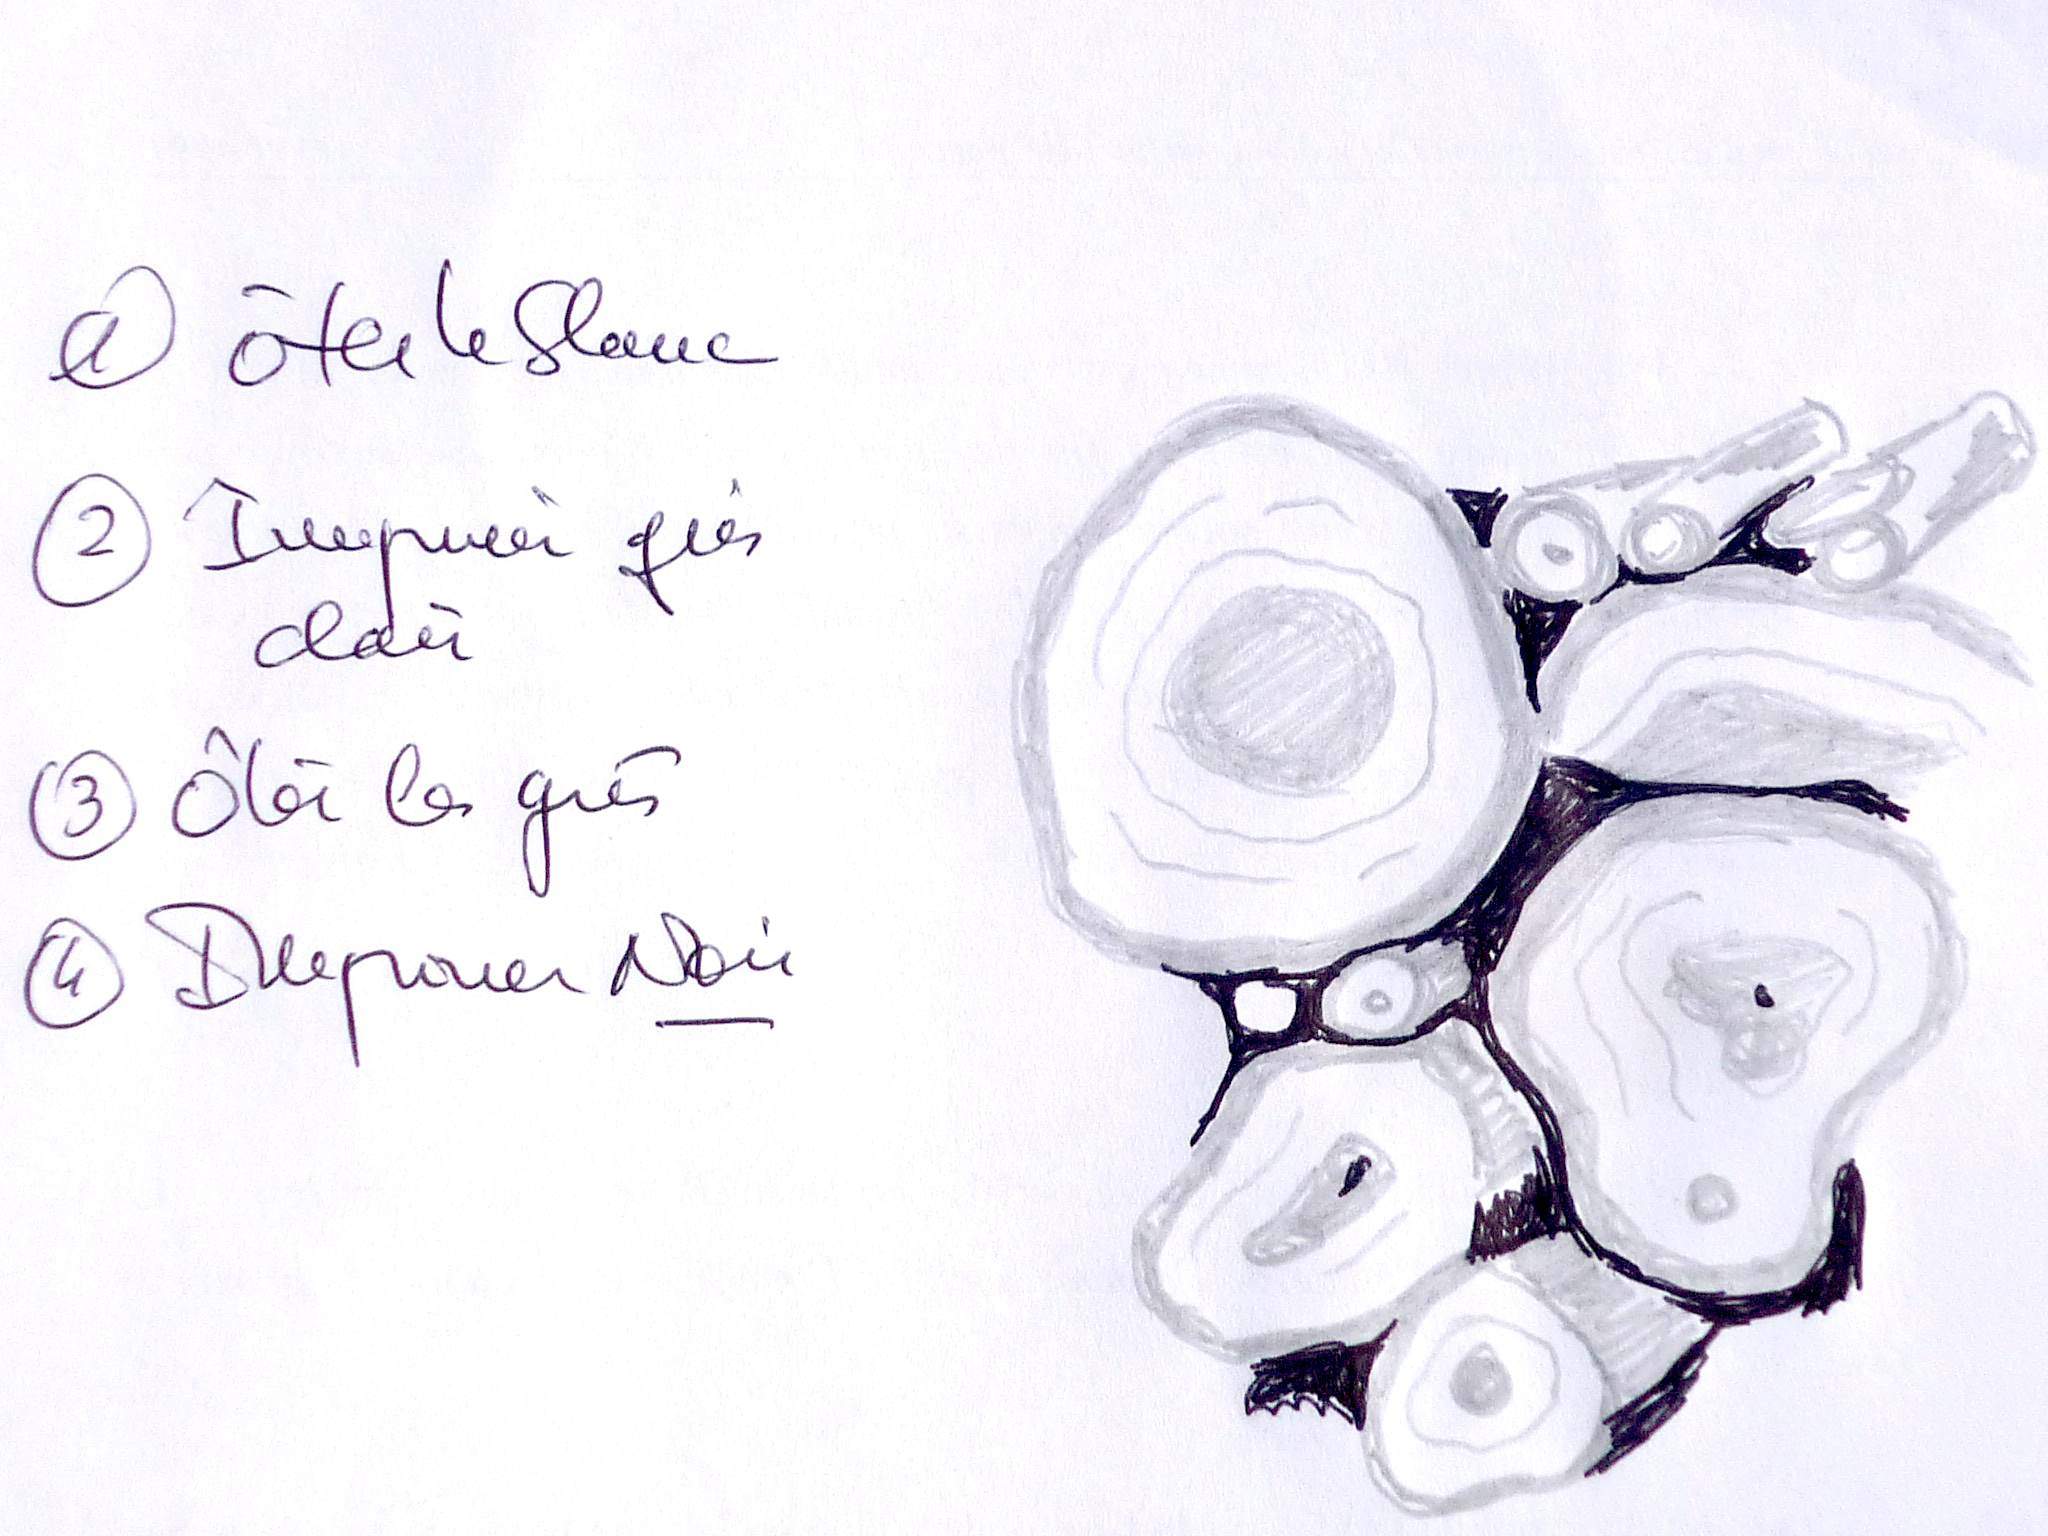 1 ôter le Blanc
2 Imprimer gris
clair
3 Ôter les gris
4 Imprimer Noir